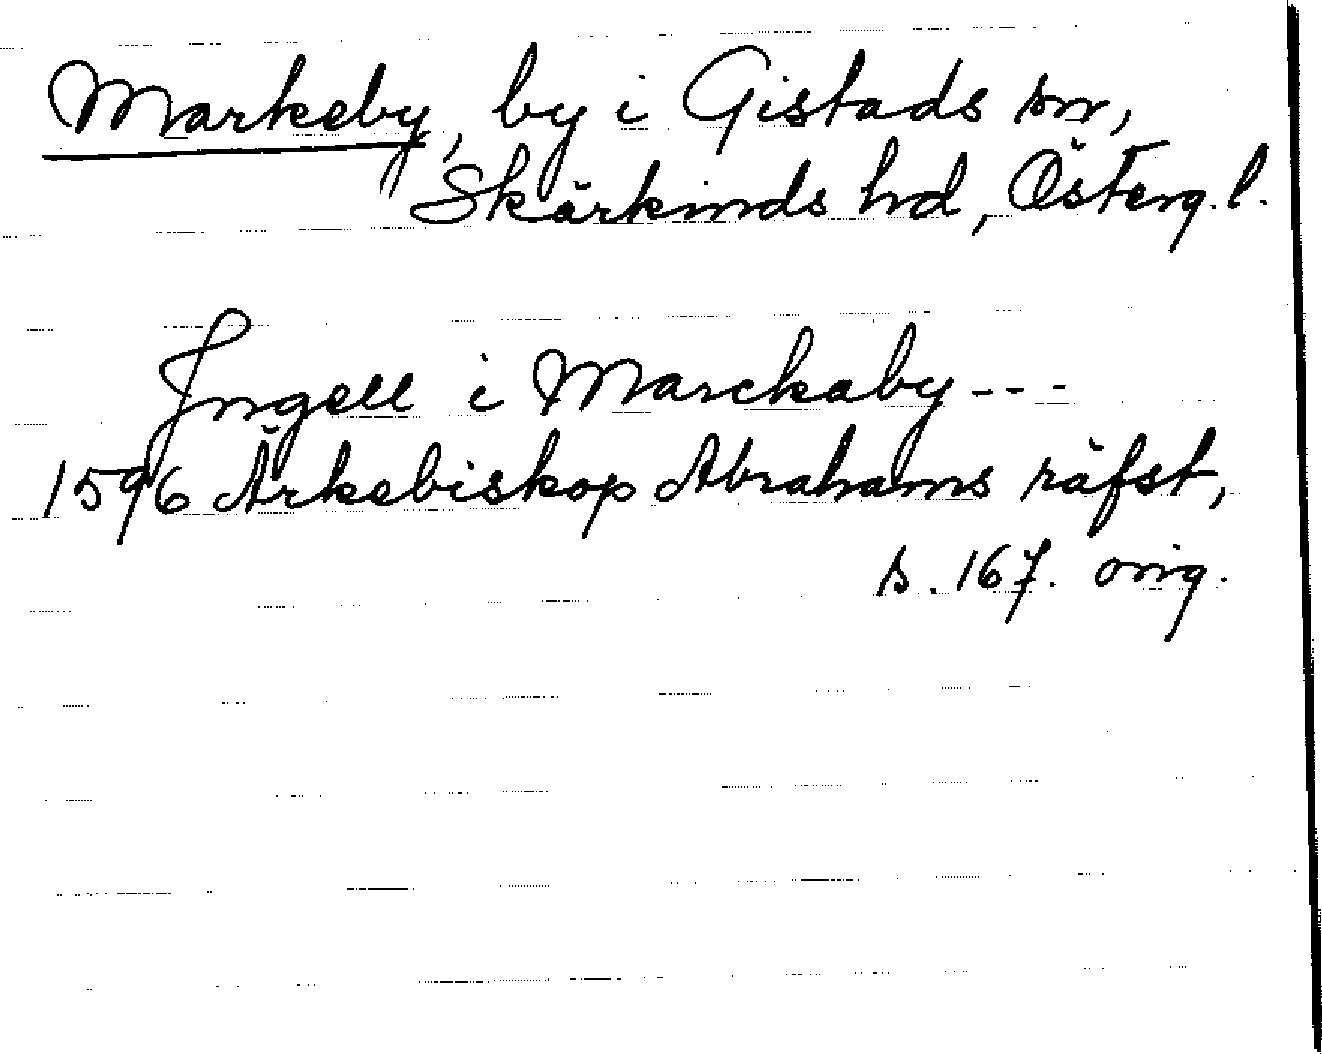 Markeby, by i Gistads sn,
Skärkinds hd, Österg. l.
Jngell i Marckaby - - -
1596 Ärkebiskop Abrahams räfst,
s. 167. orig.